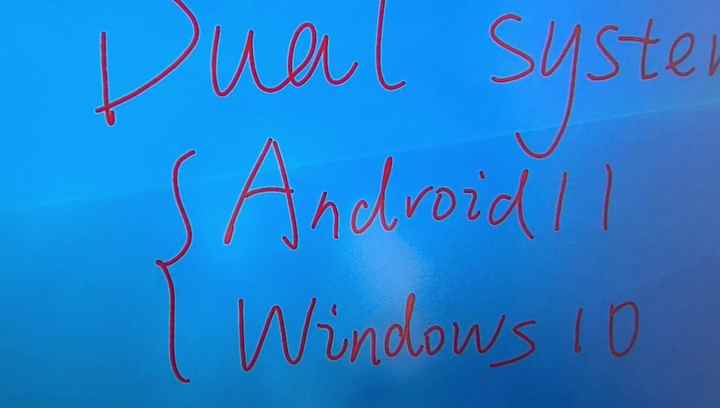 Dual system
Android 11
Windows 10